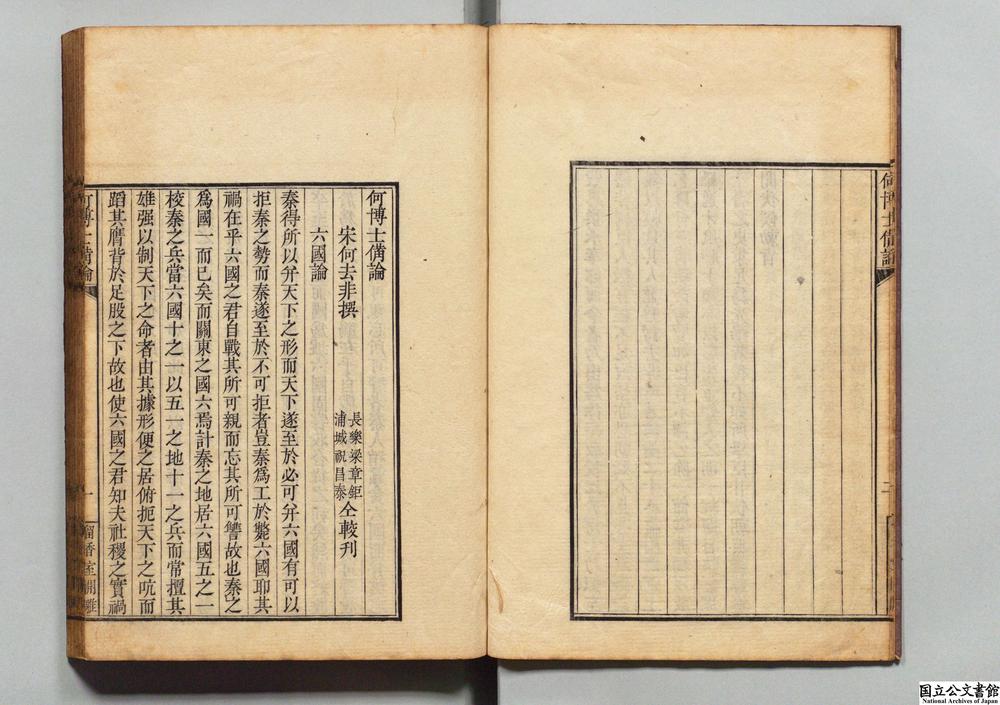 何博士備論
二
何博士備論
宋何去非撰
長樂梁章鉅
浦城祝昌泰
仝較刊
六國論
秦得所以幷天下之形而天下遂至於必可幷六國有可以
拒秦之勢而秦遂至於不可拒者豈秦爲工於斃六國耶其
禍在乎六國之君自戰其所可親而忘其所可讐故也秦之
爲國一而已矣而關東之國六焉計秦之地居六國五之一
校秦之兵當六國十之一以五一之地十一之兵而常擅其
雄强以制天下之命者由其據形便之居俯扼天下之吭而
蹈其膺背於足股之下故也使六國之君知夫社稷之實禍
何博士備論
一
留香室開雕
国立公文書館
National Archives of Japan